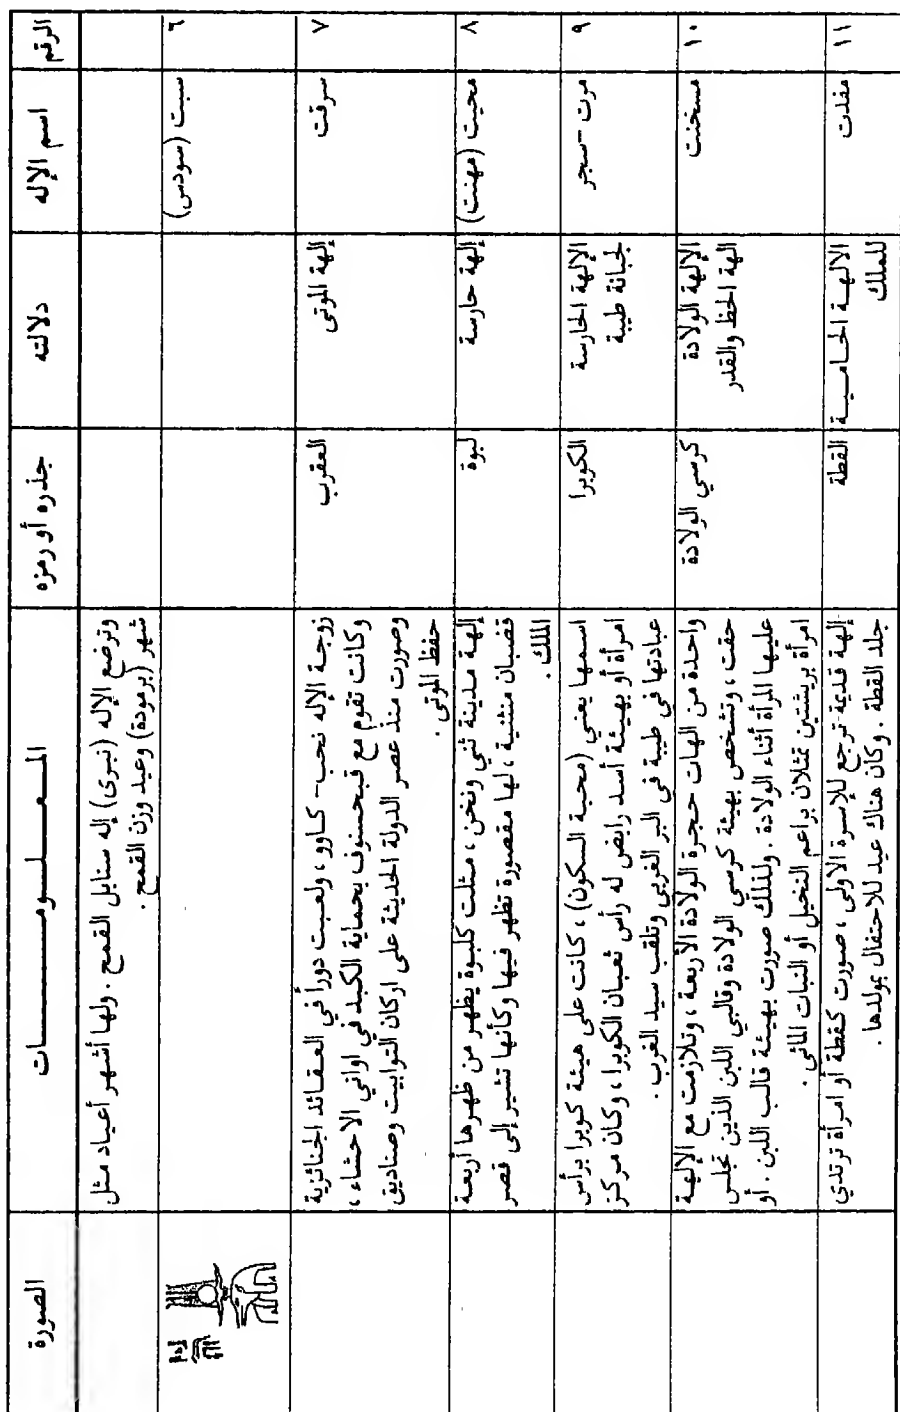 الرقم
اسم الإله
دلالته
جذره أو رمزه
المعلومات
الصورة
وترضع الإله (نبرى) إله سنابل القمح. ولها أشهر أعياد مثل
شهر (برمودة) وعيد وزن القمح.
٦
سبت (سودس)
٧
سرقت
إلهة الموتى
العقرب
زوجة الإله نحب-كاوو، ولعبت دوراً في العقائد الجنائزية
وكانت تقوم مع قبحسنوف بحماية الكبد في اواني الاحشاء،
وصورت منذ عصر الدولة الحديثة على اركان التوابيت وصناديق
حفظ الموتى.
٨
محيت (مهنت)
إلهة حارسة
لبوة
إلهة مدينة ثني ونخن، مثلت كلبوة يظهر من ظهرها أربعة
قضبان منثنية، لها مقصورة تظهر فيها وكأنها تشير إلى قصر
الملك.
٩
مرت-سجر
الإلهة الحارسة
لجبانة طيبة
الكوبرا
اسمها يعني (محبة السكون)، كانت على هيئة كوبرا برأس
امرأة أو بهيئة أسد رابض له رأس ثعبان الكوبرا، وكان مركز
عبادتها في طيبة في البر الغربي وتلقب سيد الغرب.
١٠
مسخنت
الإلهة الولادة
الهة الحظ والقدر
كرسي الولادة
واحدة من الهات حجرة الولادة الأربعة، وتلازمت مع الإلهة
حقت، وتشخص بهيئة كرسي الولادة وقالبي اللبن الذين تجلس
عليها المرأة أثناء الولادة. ولذلك صورت بهيئة قالب اللبن. أو
امرأة بريشتين تمثلان براعم النخيل أو النبات المائي.
١١
مفدت
الالهة الحامية
للملك
القطة
إلهة قديمة ترجع للإسرة الاولى، صورت كقطة أو امرأة ترتدي
جلد القطة. وكان هناك عيد للاحتفال بمولدها.